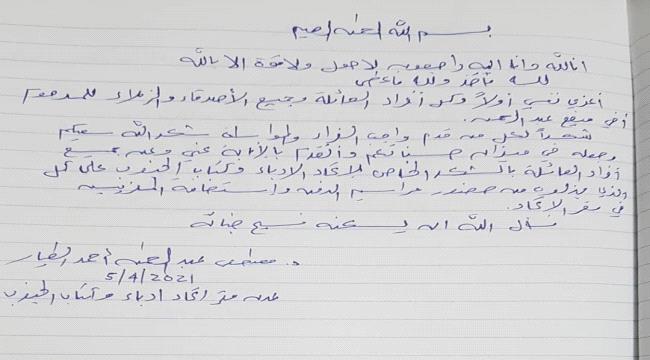 بسم الله الرحمن الرحيم
انالله وانا اليه راجعون لاحول ولا قوة الا بالله
لله ما أخذ ولله ما أعطى
أعزي نفسي أولاً وكل أفراد العائلة وجميع الأصدقاء والزملاء للمدعو
أخي عبد الرحمن
شكراً لكل من قدم واجب العزاء والمواساة شكر الله سعيكم
وجعله في ميزان حسناتكم وأتقدم بالأنابة عني وعن جميع
أفراد العائلة بالشكر الخاص لاتحاد الادباء وكتاب الجنوب على كل
الذي من حضور مراسيم الدفن واستضافة المعزيين
في مقر الاتحاد
نسأل الله ان يسكنه فسيح جناته
د. مصطفى عبد الرحمن أحمد
5/4/2021
عدن مقر اتحاد ادباء وكتاب الجنوب